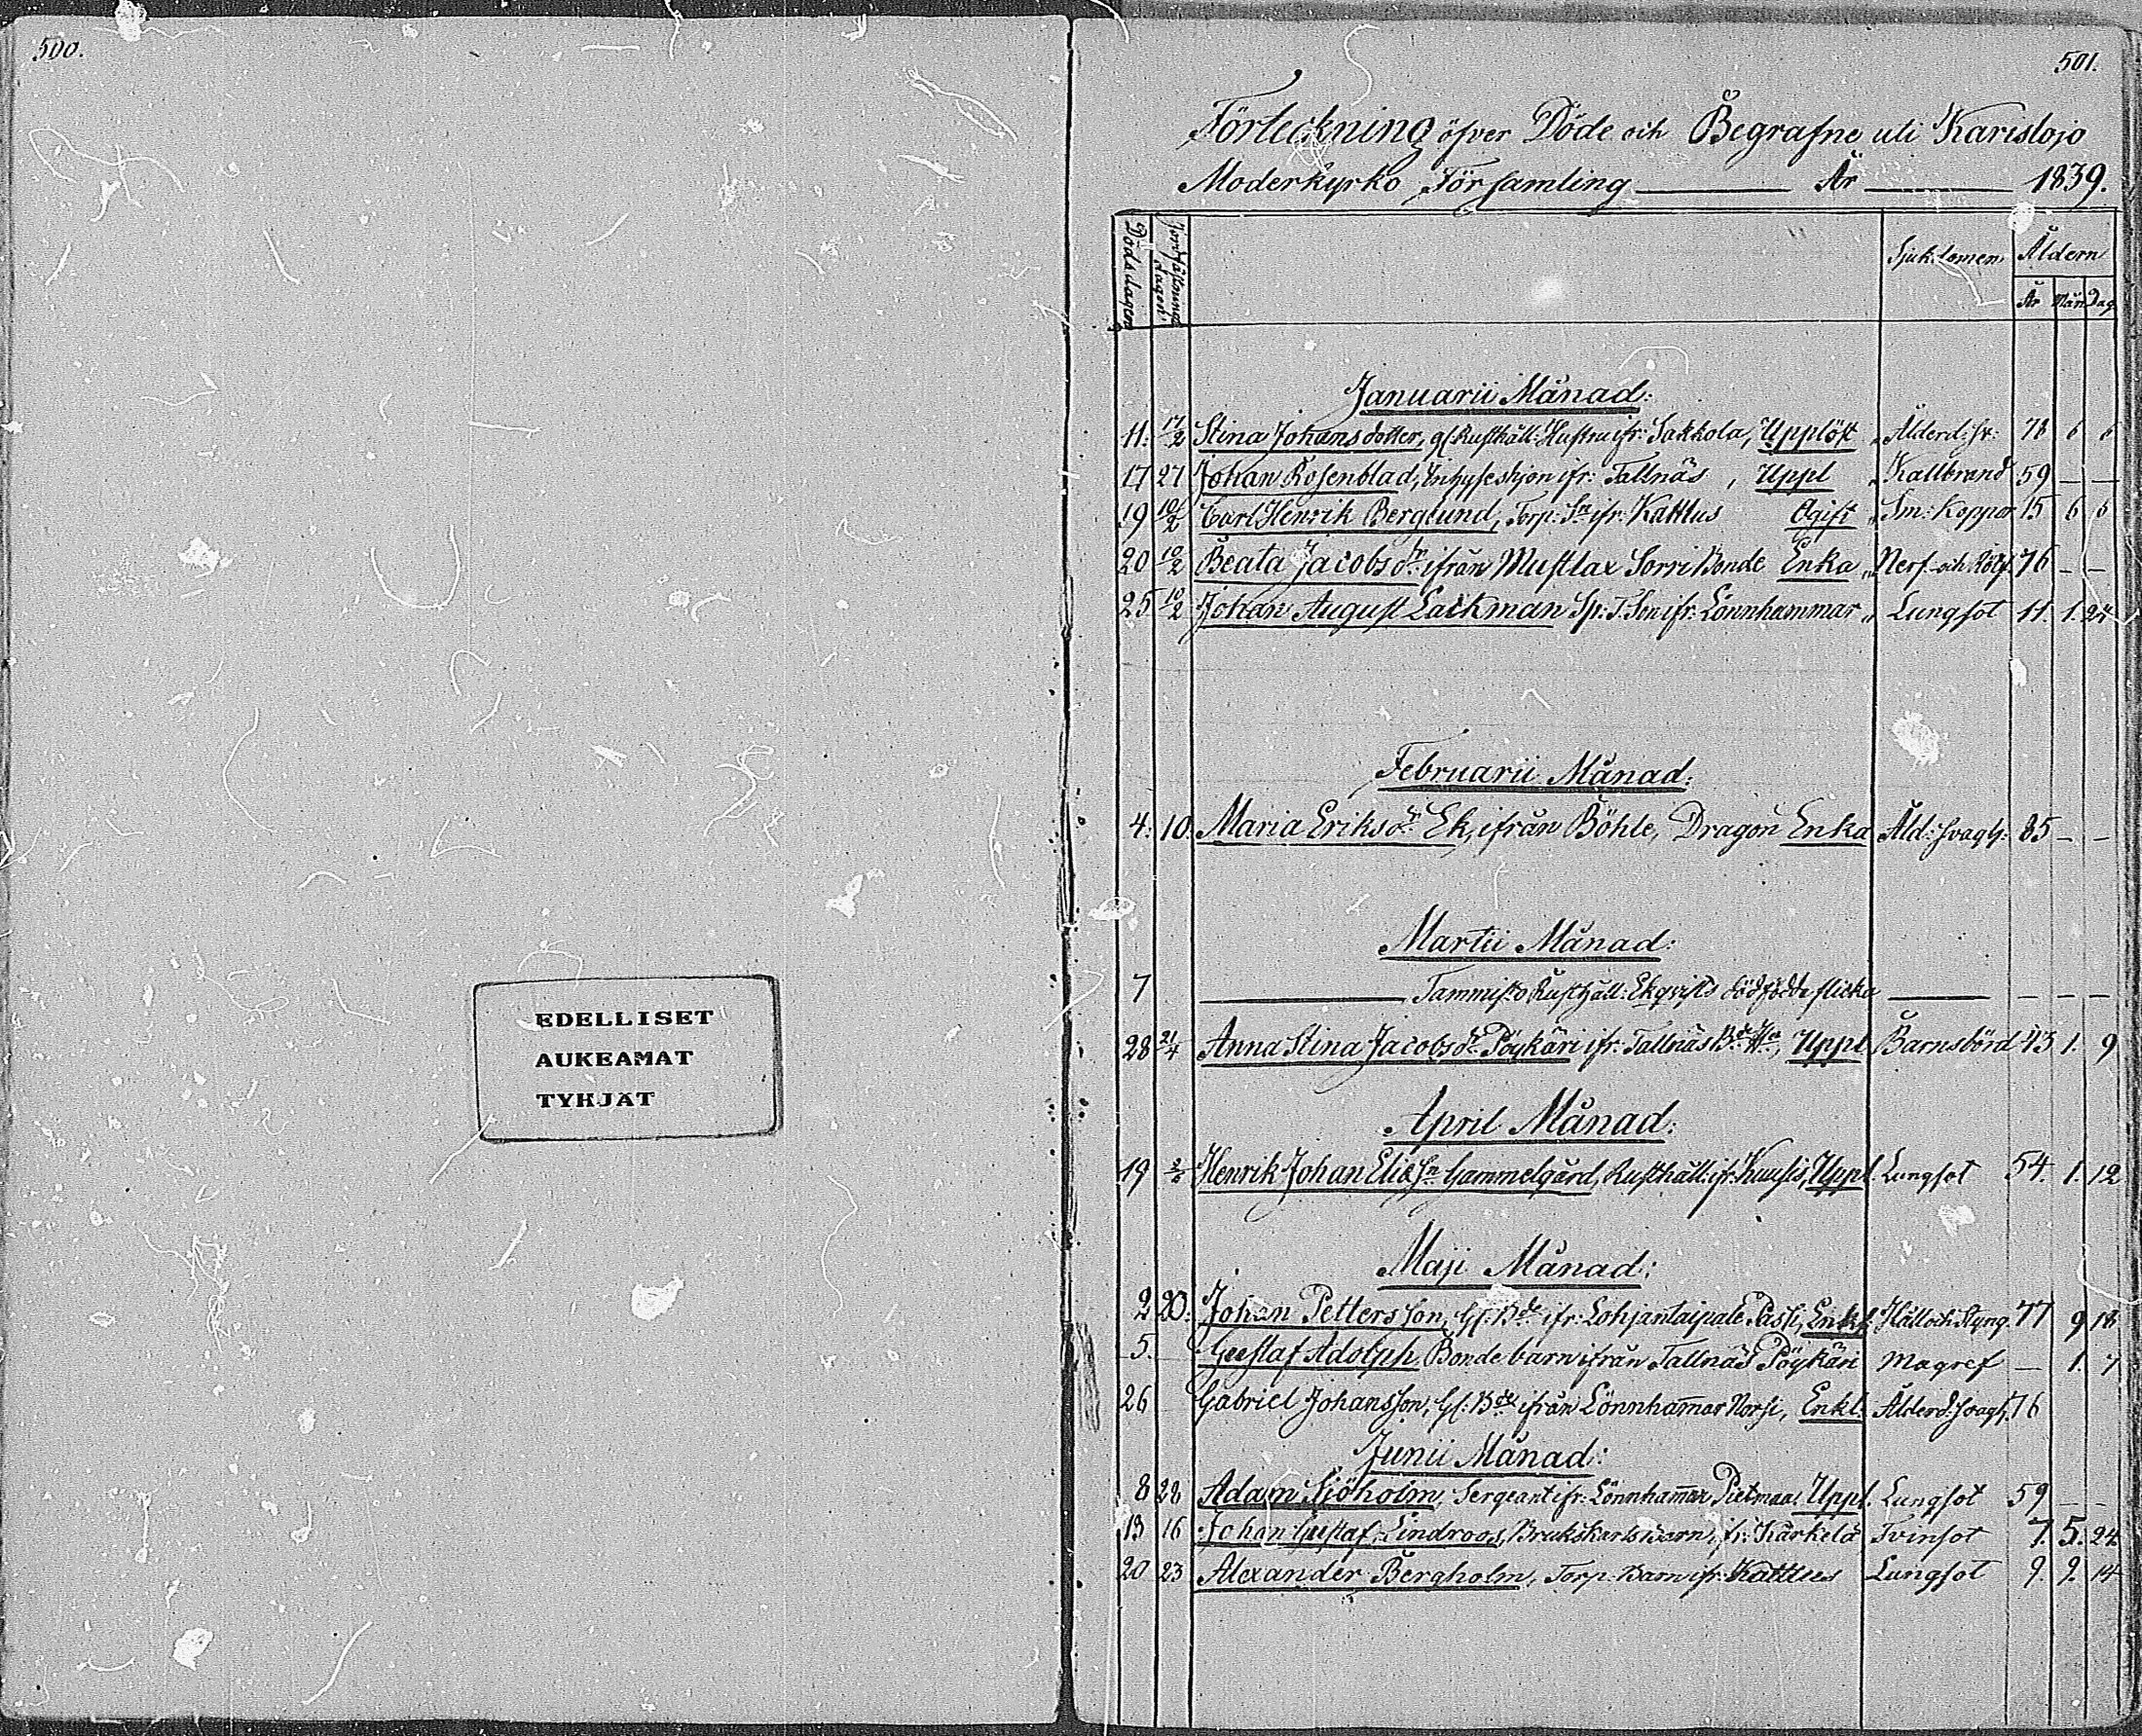 500.
EDELLISET
AUKEAMAT
TYHJÄT
501.
Förteckning öfver Döde och Begrafne uti Karislojo
Moderkyrko Församling År 1839.
Dödsdagen Jordfästnings dagen Sjukdomen Åldern
År Mån Dag
Januarii Månad:
11. 17/2 Stina Johansdotter, gf. Rusthåll. Hustru ifr: Sakkola, Upplöst Ålderd: sv: 78 6 6
17 27 Johan Rosenblad, Inhyseshjon ifr: Tallnäs, Uppl Kallbrand 59 — —
19 10/2 Carl Henrik Berglund, Torp: Sn ifr: Kattlus Ogift Sm: Koppor 15 6 6
20 10/2 Beata Jacobsdr ifrån Mustlax Sorri Bonde Enka Nerf- och Rötf. 76 — —
25 10/2 Johan August Lackman Sp. T. Son ifr: Lönnhammar Lungsot 11. 1. 24
Februarii Månad:
4: 10. Maria Eriksdr Ek, ifrån Böhle, Dragon Enka Åld: svagh: 85 — —
Martii Månad:
7 — Tammisto Rusthåll: Ekqvists dödfödda flicka — — — —
28 21/4 Anna Stina Jacobsdr Pöykäri ifr: Tallnäs Bde Hu, Uppl Barnsbörd 43 1. 9
April Månad:
19 Henrik Johan Elias Sn Gammelgård, Rusthåll: ifr: Kuusis, Uppl. Lungsot 54. 1. 12
Maji Månad:
2 20. Johan Pettersson, Gf: Bde ifr: Lohjantaipale Passi, Enkl. Håll och Styng. 77 9 18
5. Gustaf Adolph, Bondebarn ifrån Tallnäs Pöykäri Magref — 1. 7
26 Gabriel Johansson, Gf: Bde ifrån Lönnhamar Norsi, Enkl. Ålderd: svagh. 76
Junii Månad:
8 28 Adam Sjöholm, Sergeant ifr: Lönnhamar Pietmaa. Uppl. Lungsot 59 — —
13 16 Johan Gustaf Lindroos, Brukskarls Barn, ifr: Kärkelä Tvinsot 7. 5. 24
20 23 Alexander Bergholm, Torp: Barn ifr: Kattlus Lungsot 9. 9. 14